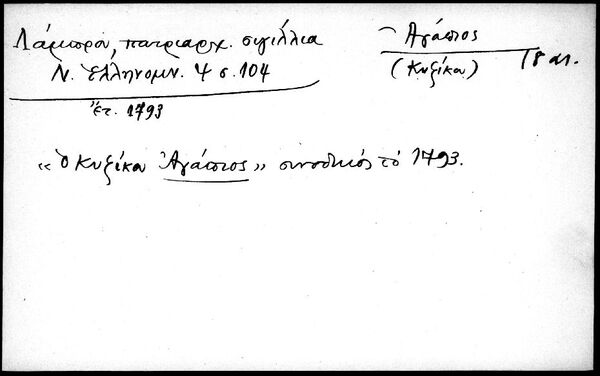 Λάμπρου, πατριαρχ. σιγίλλια
Ν. Ἑλληνομν. 4 σ. 104
ἔτ. 1793
Ἀγάπιος
(Κυζίκου)
18 αι.
« ὁ Κυζίκου Ἀγάπιος » συνοδικός τό 1793.